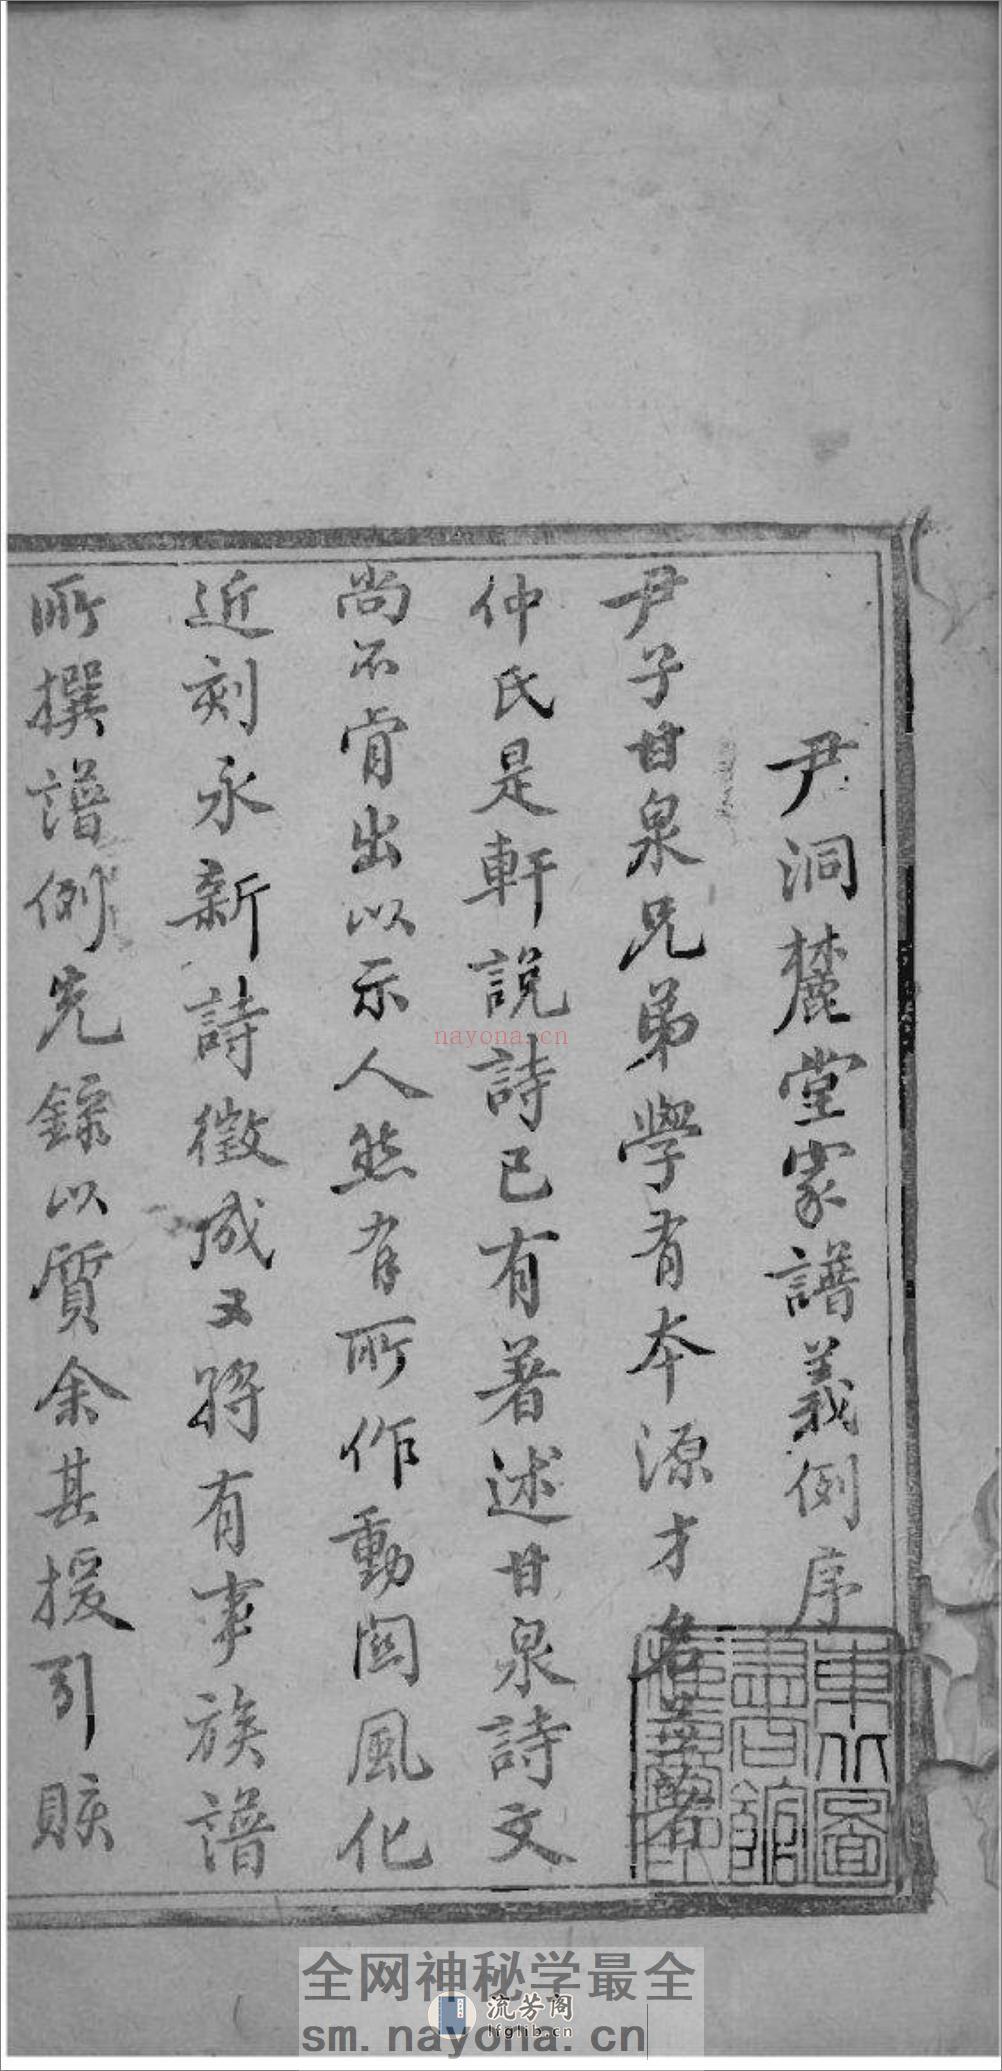 尹洞麓堂家譜義例序
尹子甘泉兄弟學有本源才名並著
仲氏是軒説詩已有著述甘泉詩文
尚不肯出以示人然有所作動関風化
近刻永新詩徵成又將有事族譜
所撰譜例先錄以質余其援引賅
東北圖
書館
nayona.cn
全网神秘学最全
流芳阁
lfglib.cn
sm.nayona.cn